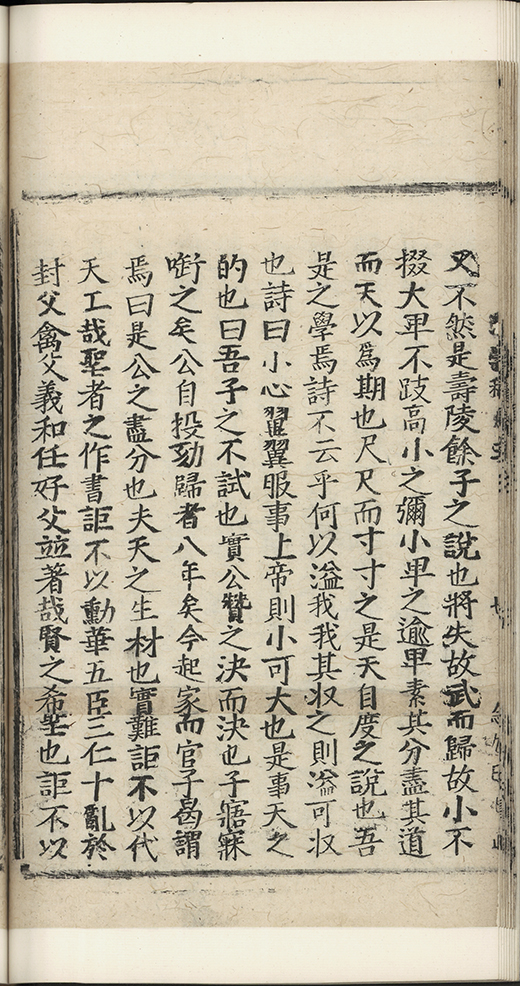 又不然是壽陵餘子之說也將失故武而歸故小不
掇大卑不跂高小之彌小卑之逾卑素其分盡其道
而天以爲期也尺尺而寸寸之是天自度之說也吾
是之學焉詩不云乎何以溢我我其収之則溢可収
也詩曰小心翼翼服事上帝則小可大也是事天之
的也曰吾子之不試也實公贊之決而決也子寤寐
啣之矣公自投劾歸者八年矣今起家而官子曷謂
焉曰是公之盡分也夫天之生材也實難詎不以代
天工哉聖者之作書詎不以勳華五臣三仁十亂於
封父禽父義和任好父竝著哉賢之希聖也詎不以